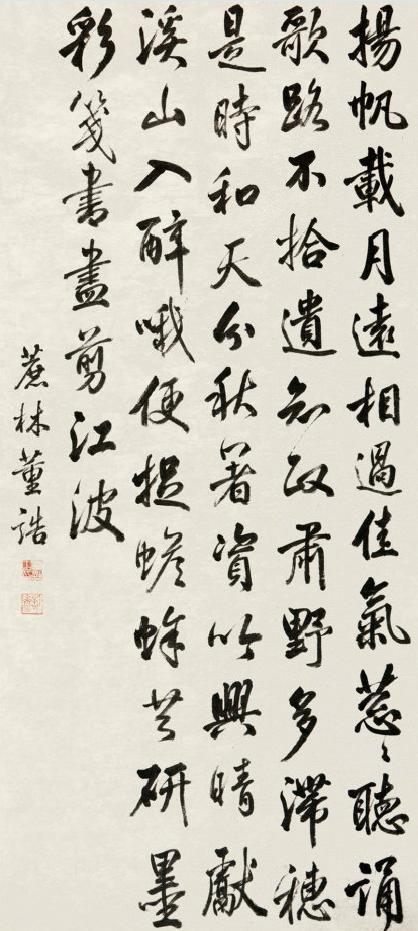 揚帆載月遠相過佳氣葱〻聽誦
歌路不拾遺知政肅野多滯穗
是時和天分秋暑資吟興晴獻
溪山入醉哦便捉蟾蜍共研墨
彩箋書盡剪江波
蔗林董誥